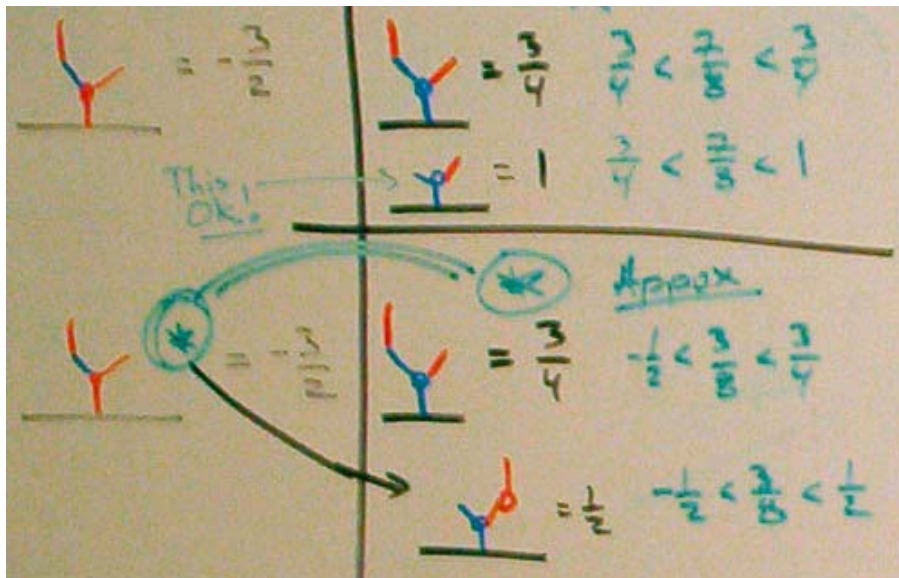 = -3/2
= 3/4
3/4 < 7/8 < 3/4
This
Ok!
= 1
3/4 < 7/8 < 1
*
*
Appox
= -3/2
= 3/4
-1/2 < 3/8 < 3/4
= 1/2
-1/2 < 3/8 < 1/2